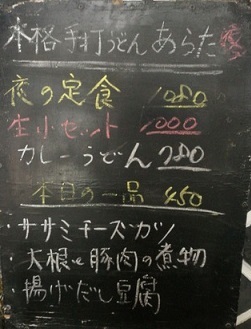 本格手打うどん あらた
夜の定食 1080
生小セット 1000
カレーうどん 780
本日の一品 450
・ササミチーズカツ
・大根と豚肉の煮物
・揚げだし豆腐